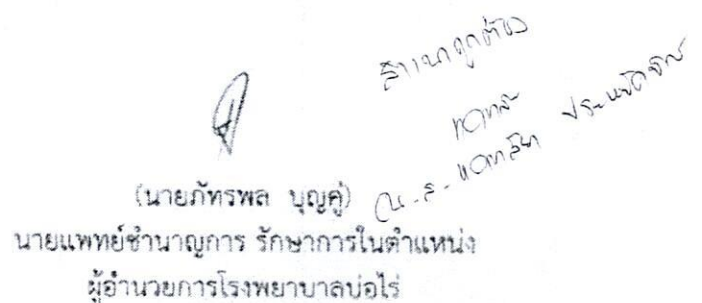 สำเนาถูกต้อง
(นายภัทรพล บุญคู่)
นายแพทย์ชำนาญการ รักษาการในตำแหน่ง
ผู้อำนวยการโรงพยาบาลบ่อไร่